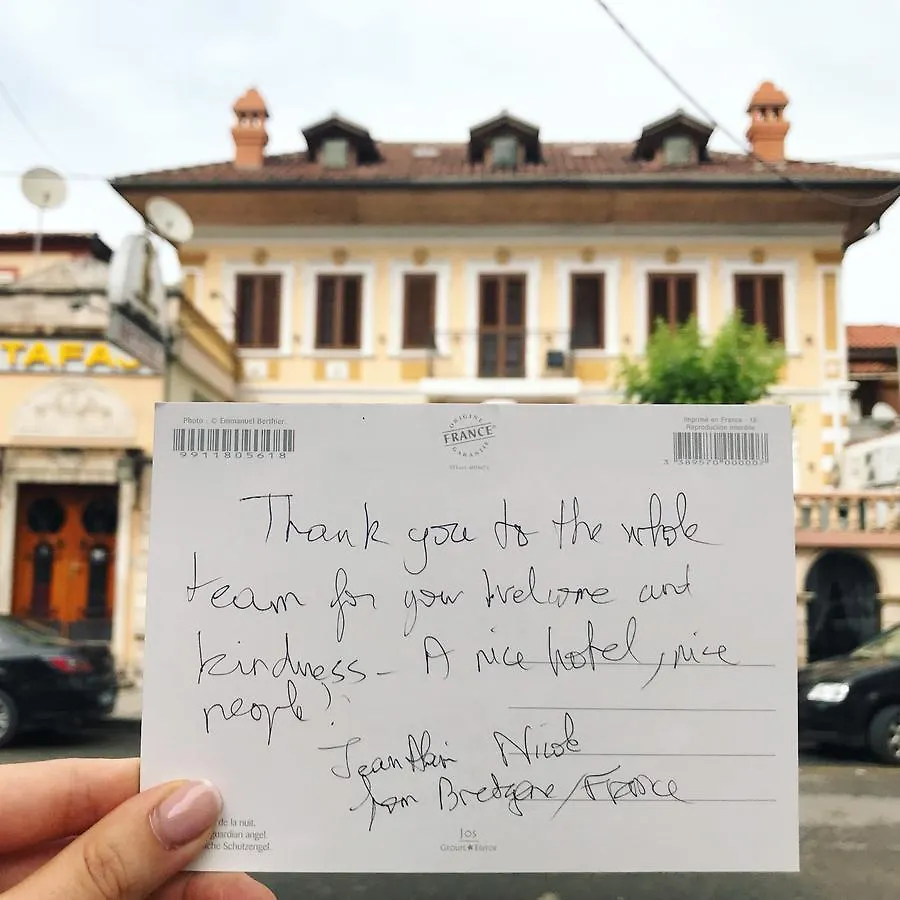 TAFA
Photo : © Emmanuel Berthier.
9911805618
ORIGINE
FRANCE
GARANTIE
Imprimé en France - 16-
Reproduction interdite
3 389570 000007
Thank you to the whole
team for your welcome and
kindness - A nice hotel, nice
people!
Nicole
from Bretagne / France
de la nuit,
guardian angel.
che Schutzengel.
Jos
GROUPE EDITOR